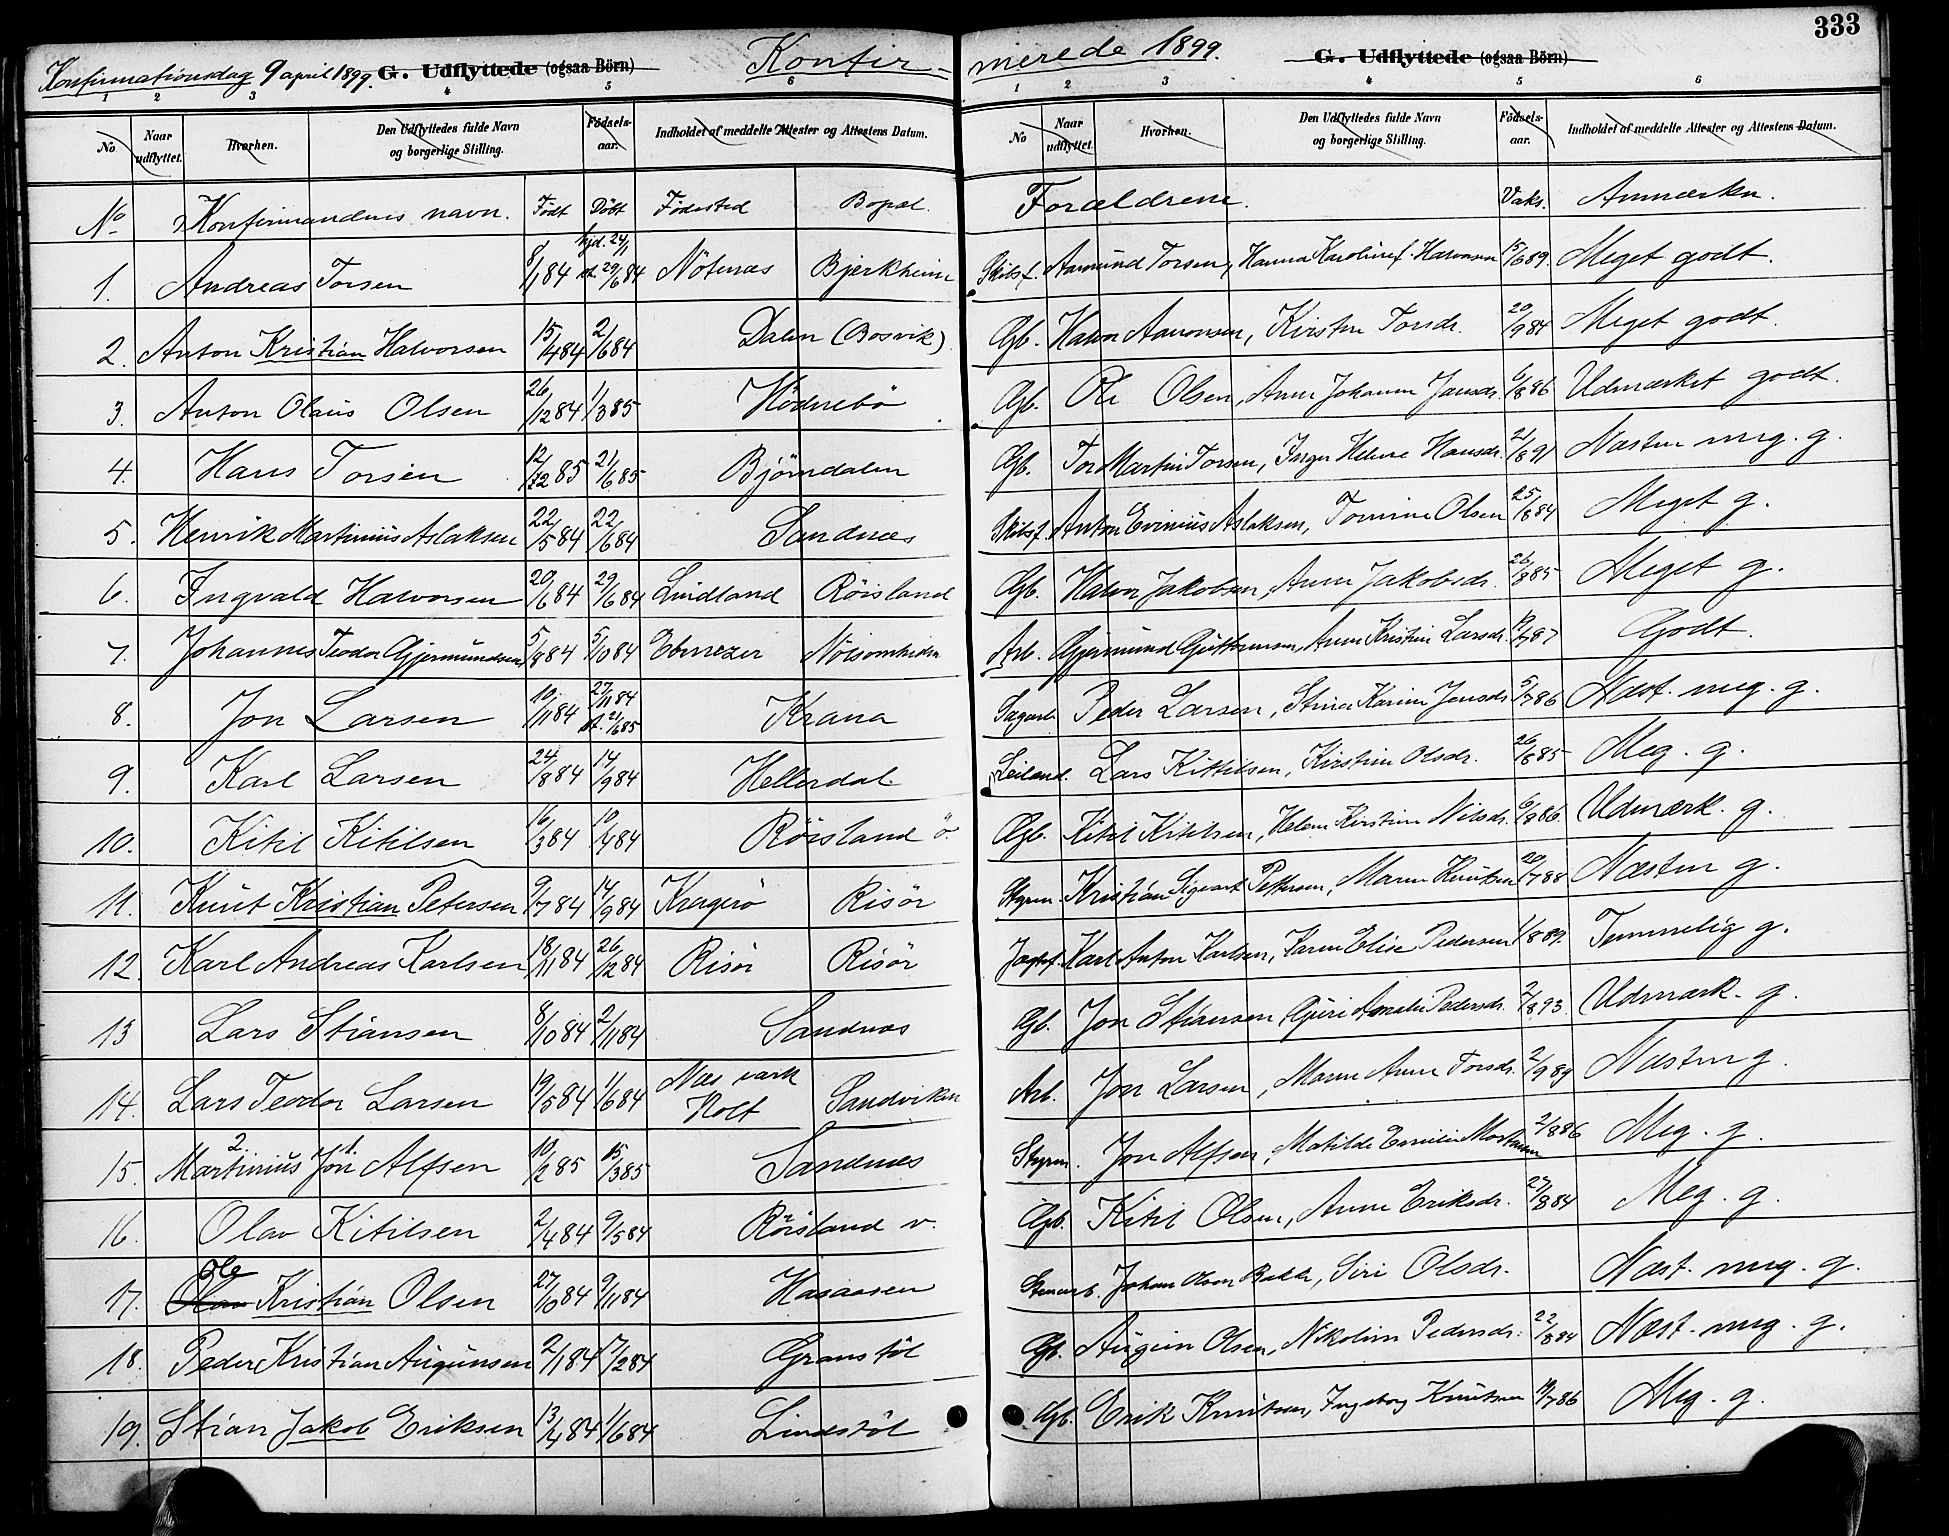 333
Konfirmationsdag 9 april 1899. G. Udflyttede (ogsaa Börn) Konfirmerede 1899. G. Udflyttede (ogsaa Börn)
1 2 3 4 5 6 1 2 3 4 5 6
No Naar udflyttet. Hvorhen. Den Udflyttedes fulde Navn og borgerlige Stilling. Födsels-aar. Indholdet af meddelte Attester og Attestens Datum. No Naar udflyttet Hvorhen. Den Udflyttedes fulde Navn og borgerlige Stilling. Födsels-aar. Indholdet af meddelte Attester og Attestens Datum.
No Konfirmandens navn. Födt Döbt Födested Bopæl. Forældrene. Vaks. Anmærkn.
1. Andreas Torsen 8/1 84 hjd. 24/1 st. 29/6 84 Nötenæs Bjerkheim Skibsf. Aamund Torsen, Hanna Karoline f. Halvorsen 15/6 89. Meget godt.
2. Anton Kristian Halvorsen 15/4 84 2/6 84 Dalen (Bosvik) Gb. Halvor Aanonsen, Kirsten Torsdr. 20/9 84 Meget godt.
3. Anton Olaus Olsen 26/12 84 1/3 85 Hödnebö Gb. Ole Olsen, Anne Johanne Jensdr. 6/8 86 Udmærket godt.
4. Hans Torsen 12/2 85 21/6 85 Björndalen Gb. Tor Martin Torsen, Inger Helene Hansdr. 21/8 91 Næsten meg. g.
5. Henrik Martinius Aslaksen 22/5 84 22/6 84 Sandnæs Skibsf. Anton Evinius Aslaksen, Tomine Olsen 25/8 84 Meget g.
6. Ingvald Halvorsen 20/6 84 29/6 84 Lindland Röisland Gb. Halvor Jakobsen, Anne Jakobsdr. 26/8 85 Meget g.
7. Johannes Teodor Gjermundsen 5/8 84 5/10 84 Ebenezer Arb. Gjermund Guttormsen, Anne Kristine Larsdr. 87 Godt.
8. Jon Larsen 10/11 84 27/11 84 st. 21/6 85 Krana Sagarb. Peder Larsen, Stina Karine Jensdr. 5/7 86 Næst. meg. g.
9. Karl Larsen 24/8 84 14/9 84 Hellerdal Leiland. Lars Kittilsen, Kirstine Olsdr. 26/8 85 Meg. g.
10. Kitil Kitilsen 16/3 84 10/4 84 Röisland ö. Gb. Kitil Kitilsen, Helene Kirstine Nilsdr. 6/8 86. Udmærk. g.
11. Knut Kristian Petersen 9/7 84 14/9 84 Kragerö Risör Styrm. Kristian Sigvart Pettersen, Maren Knutsen 20/7 88 Næsten g.
12. Karl Andreas Karlsen 18/11 84 26/12 84 Risör Risör Jagtsf. Karl Anton Karlsen, Karen Elise Pedersen 1/8 89. Temmelig g.
13 Lars Stiansen 8/10 84 2/11 84 Sandnæs Gb. Jon Stiansen, Guri Amalie Pedersdr. 2/8 93. Udmærk. g.
14. Lars Teodor Larsen 19/5 84 1/6 84 Næs værk Holt Sandviken Arb. Jon Larsen, Maren Anne Torsdr. 2/9 89 Næsten g.
15. Martinius 2. Jon 1. Alfsen 10/2 85 15/3 85 Sandnæs Styrm. Jon Alfsen, Matilde Emilie Mortensen 2/8 86 Meg. g.
16. Olav Kitilsen 2/4 84 9/5 84 Röisland v. Gb. Kitil Olsen, Anne Eriksdr. 27/8 84 Meg. g.
17. Ole Kristian Olsen 27/10 84 9/11 84 Hasaasen Stenarb. Johan Olsen Bakke, Siri Olsdr. Næst. meg. g.
18. Peder Kristian Augunsen 2/1 84 17/2 84 Granstöl Gb. Augun Olsen, Nikoline Pedersdr. 22/8 84 Næst. meg. g.
19. Stian Jakob Eriksen 13/4 84 1/6 84 Lindstöl Gb. Erik Knutsen, Ingeborg Knutsen 14/7 86 Meg. g.